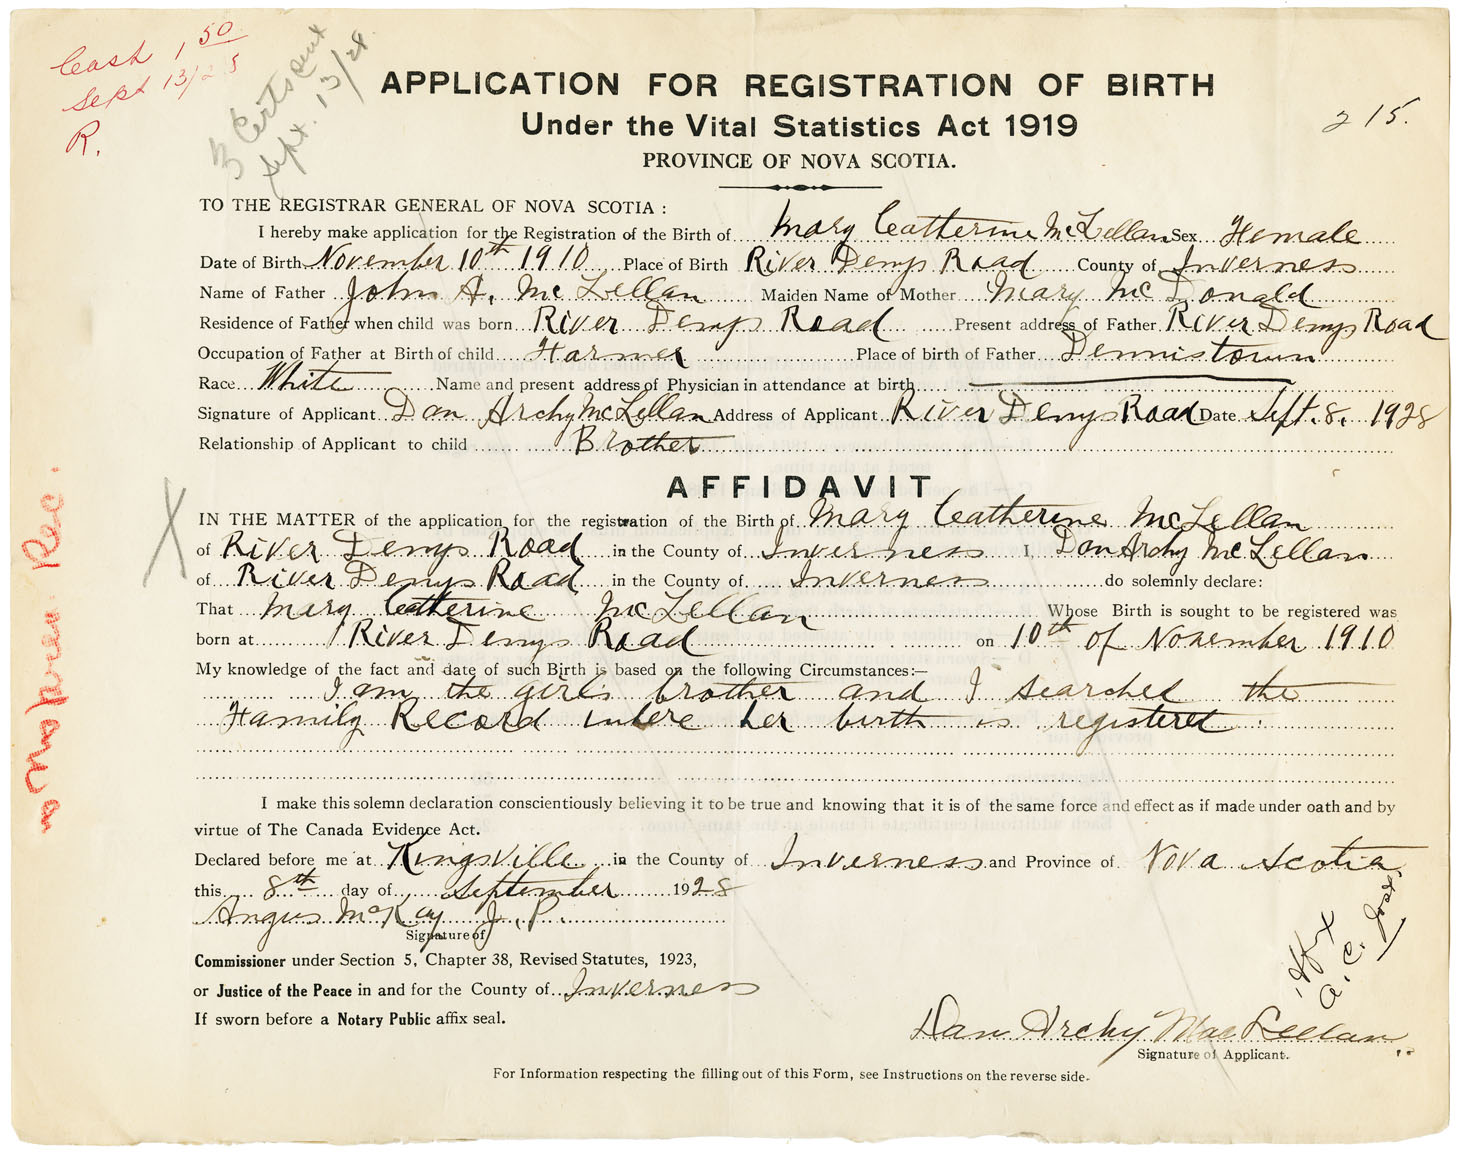 Cash 1 50
Sept 13/28
R.
3 Certs sent
Sept. 13/28
APPLICATION FOR REGISTRATION OF BIRTH
215.
Under the Vital Statistics Act 1919
PROVINCE OF NOVA SCOTIA.
TO THE REGISTRAR GENERAL OF NOVA SCOTIA :
I hereby make application for the Registration of the Birth of Mary Catherine McLellan Sex Female
Date of Birth November 10th 1910 Place of Birth River Denys Road County of Inverness
Name of Father John A. McLellan Maiden Name of Mother Mary McDonald
Residence of Father when child was born River Denys Road Present address of Father River Denys Road
Occupation of Father at Birth of child Farmer Place of birth of Father Dennistown
Race White Name and present address of Physician in attendance at birth
Signature of Applicant Dan Archy McLellan Address of Applicant River Denys Road Date Sept. 8. 1928
Relationship of Applicant to child Brother
AFFIDAVIT
IN THE MATTER of the application for the registration of the Birth of Mary Catherine McLellan
of River Denys Road in the County of Inverness I, Dan Archy McLellan
of River Denys Road in the County of Inverness do solemnly declare:
That Mary Catherine McLellan Whose Birth is sought to be registered was
born at River Denys Road on 10th of November 1910
My knowledge of the fact and date of such Birth is based on the following Circumstances:—
I am the girl's brother and I searched the
Family Record where her birth is registered.
I make this solemn declaration conscientiously believing it to be true and knowing that it is of the same force and effect as if made under oath and by
virtue of The Canada Evidence Act.
Declared before me at Kingsville in the County of Inverness and Province of Nova Scotia
this 8th day of September 1928
Angus McKay J. P.
Signature of
Commissioner under Section 5, Chapter 38, Revised Statutes, 1923,
or Justice of the Peace in and for the County of Inverness
If sworn before a Notary Public affix seal.
Dan Archy MacLellan
Signature of Applicant.
For Information respecting the filling out of this Form, see Instructions on the reverse side.
X